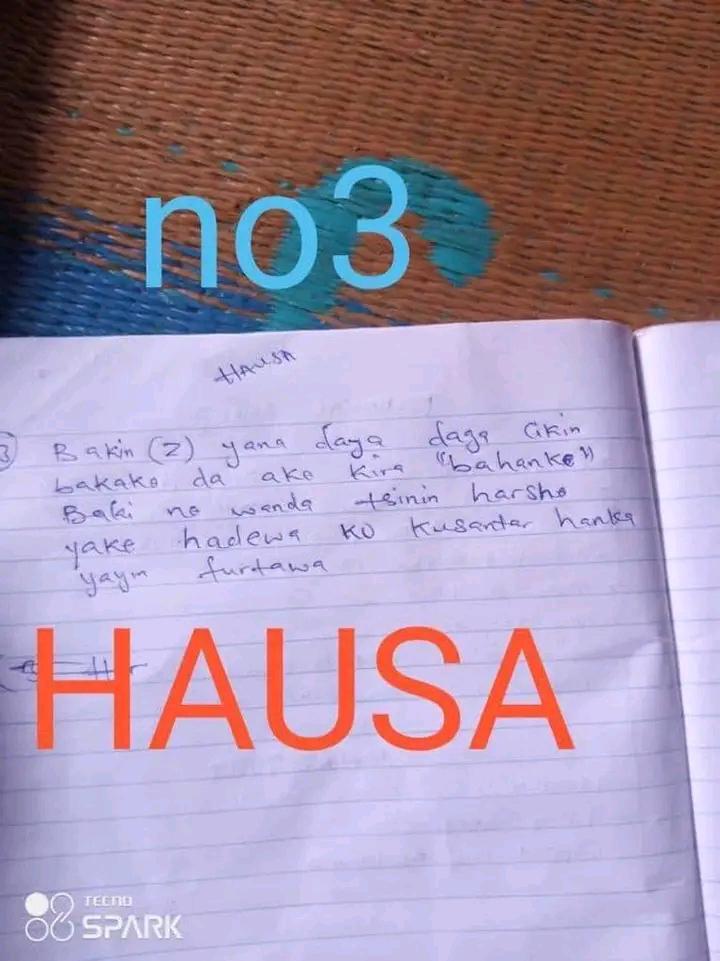 no3
HAUSA
3 Bakin (z) yana daya daga cikin
bakake da ake kira "bahanke"
Baki ne wanda tsinin harshe
yake hadewa ko kusantar hanka
yayin furtawa
HAUSA
TECNO
SPARK